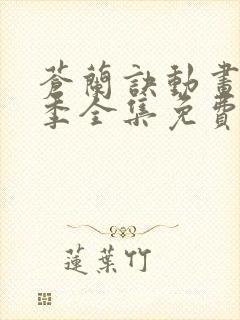 蒼蘭訣動畫
季全集免費
蓮葉竹